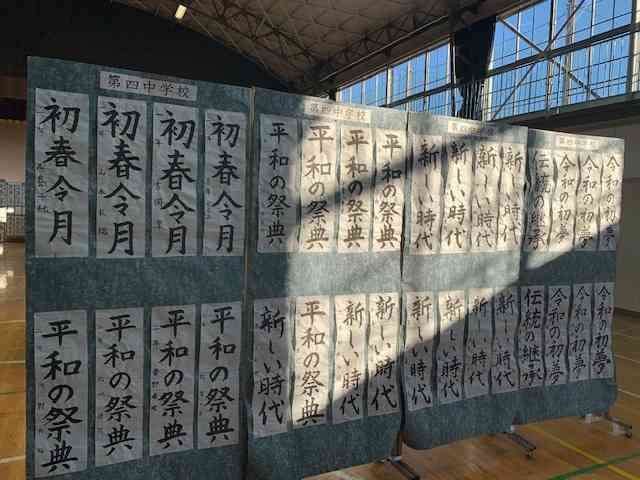 第四中学校
初春令月
初春令月
初春令月
初春令月
平和の祭典
平和の祭典
平和の祭典
平和の祭典
第四中学校
平和の祭典
平和の祭典
平和の祭典
平和の祭典
新しい時代
平和の祭典
新しい時代
新しい時代
新しい時代
新しい時代
新しい時代
新しい時代
新しい時代
新しい時代
新しい時代
新しい時代
伝統の継承
令和の初夢
令和の初夢
令和の初夢
伝統の継承
令和の初夢
令和の初夢
令和の初夢